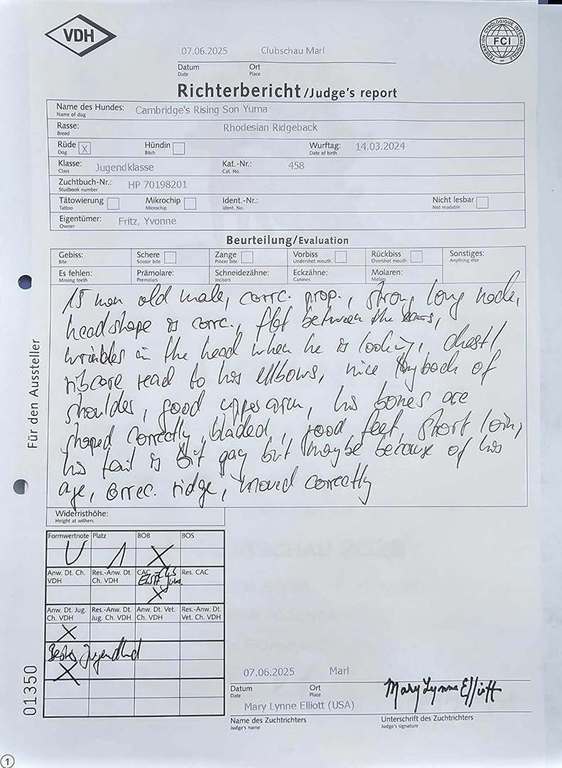 VDH
FCI
07.06.2025 Clubschau Marl
Datum Ort
Date Place
Richterbericht/Judge's report
Name des Hundes: Cambridge's Rising Son Yuma
Name of dog
Rasse: Rhodesian Ridgeback
Breed
Rüde X Hündin Wurftag: 14.03.2024
Dog Bitch Date of birth
Klasse: Jugendklasse Kat.-Nr.: 458
Class Cat. No.
Zuchtbuch-Nr.: HP 70198201
Studbook number
Tätowierung Mikrochip Ident.-Nr.: Nicht lesbar
Tattoo Microchip Ident. No. Not readable
Eigentümer: Fritz, Yvonne
Owner
Beurteilung/Evaluation
Gebiss: Schere Zange Vorbiss Rückbiss Sonstiges:
Bite Scissor bite Pincer bite Undershot mouth Overshot mouth Anything else
Es fehlen: Prämolare: Schneidezähne: Eckzähne: Molaren:
Missing teeth Premolars Incisors Canines Molars
15 mon old male, corrc. prop., strong long neck,
headshape is corrc., flat between the ears,
wrinkles in the head when he is looking, chest/
ribcage read to his elbows, nice layback of
shoulder, good upperarm, his bones are
shaped correctly, bladed, good feet, short loin,
his tail is bit gay but maybe because of his
age, correc. ridge, moved correctly
Für den Aussteller
Widerristhöhe:
Height at withers
Formwertnote Platz BOB BOS
V 1 X
Anw. Dt. Ch. VDH Res.-Anw. Dt. Ch. VDH CAC Res. CAC
X
Anw. Dt. Jug. Ch. VDH Res.-Anw. Dt. Jug. Ch. VDH Anw. Dt. Vet. Ch. VDH Res.-Anw. Dt. Vet. Ch. VDH
X
Bester Jugendhd
X
01350
07.06.2025 Marl
Datum Ort
Date Place
Mary Lynne Elliott (USA) Mary Lynne Elliott
Name des Zuchtrichters Unterschrift des Zuchtrichters
Judge's name Judge's signature
1